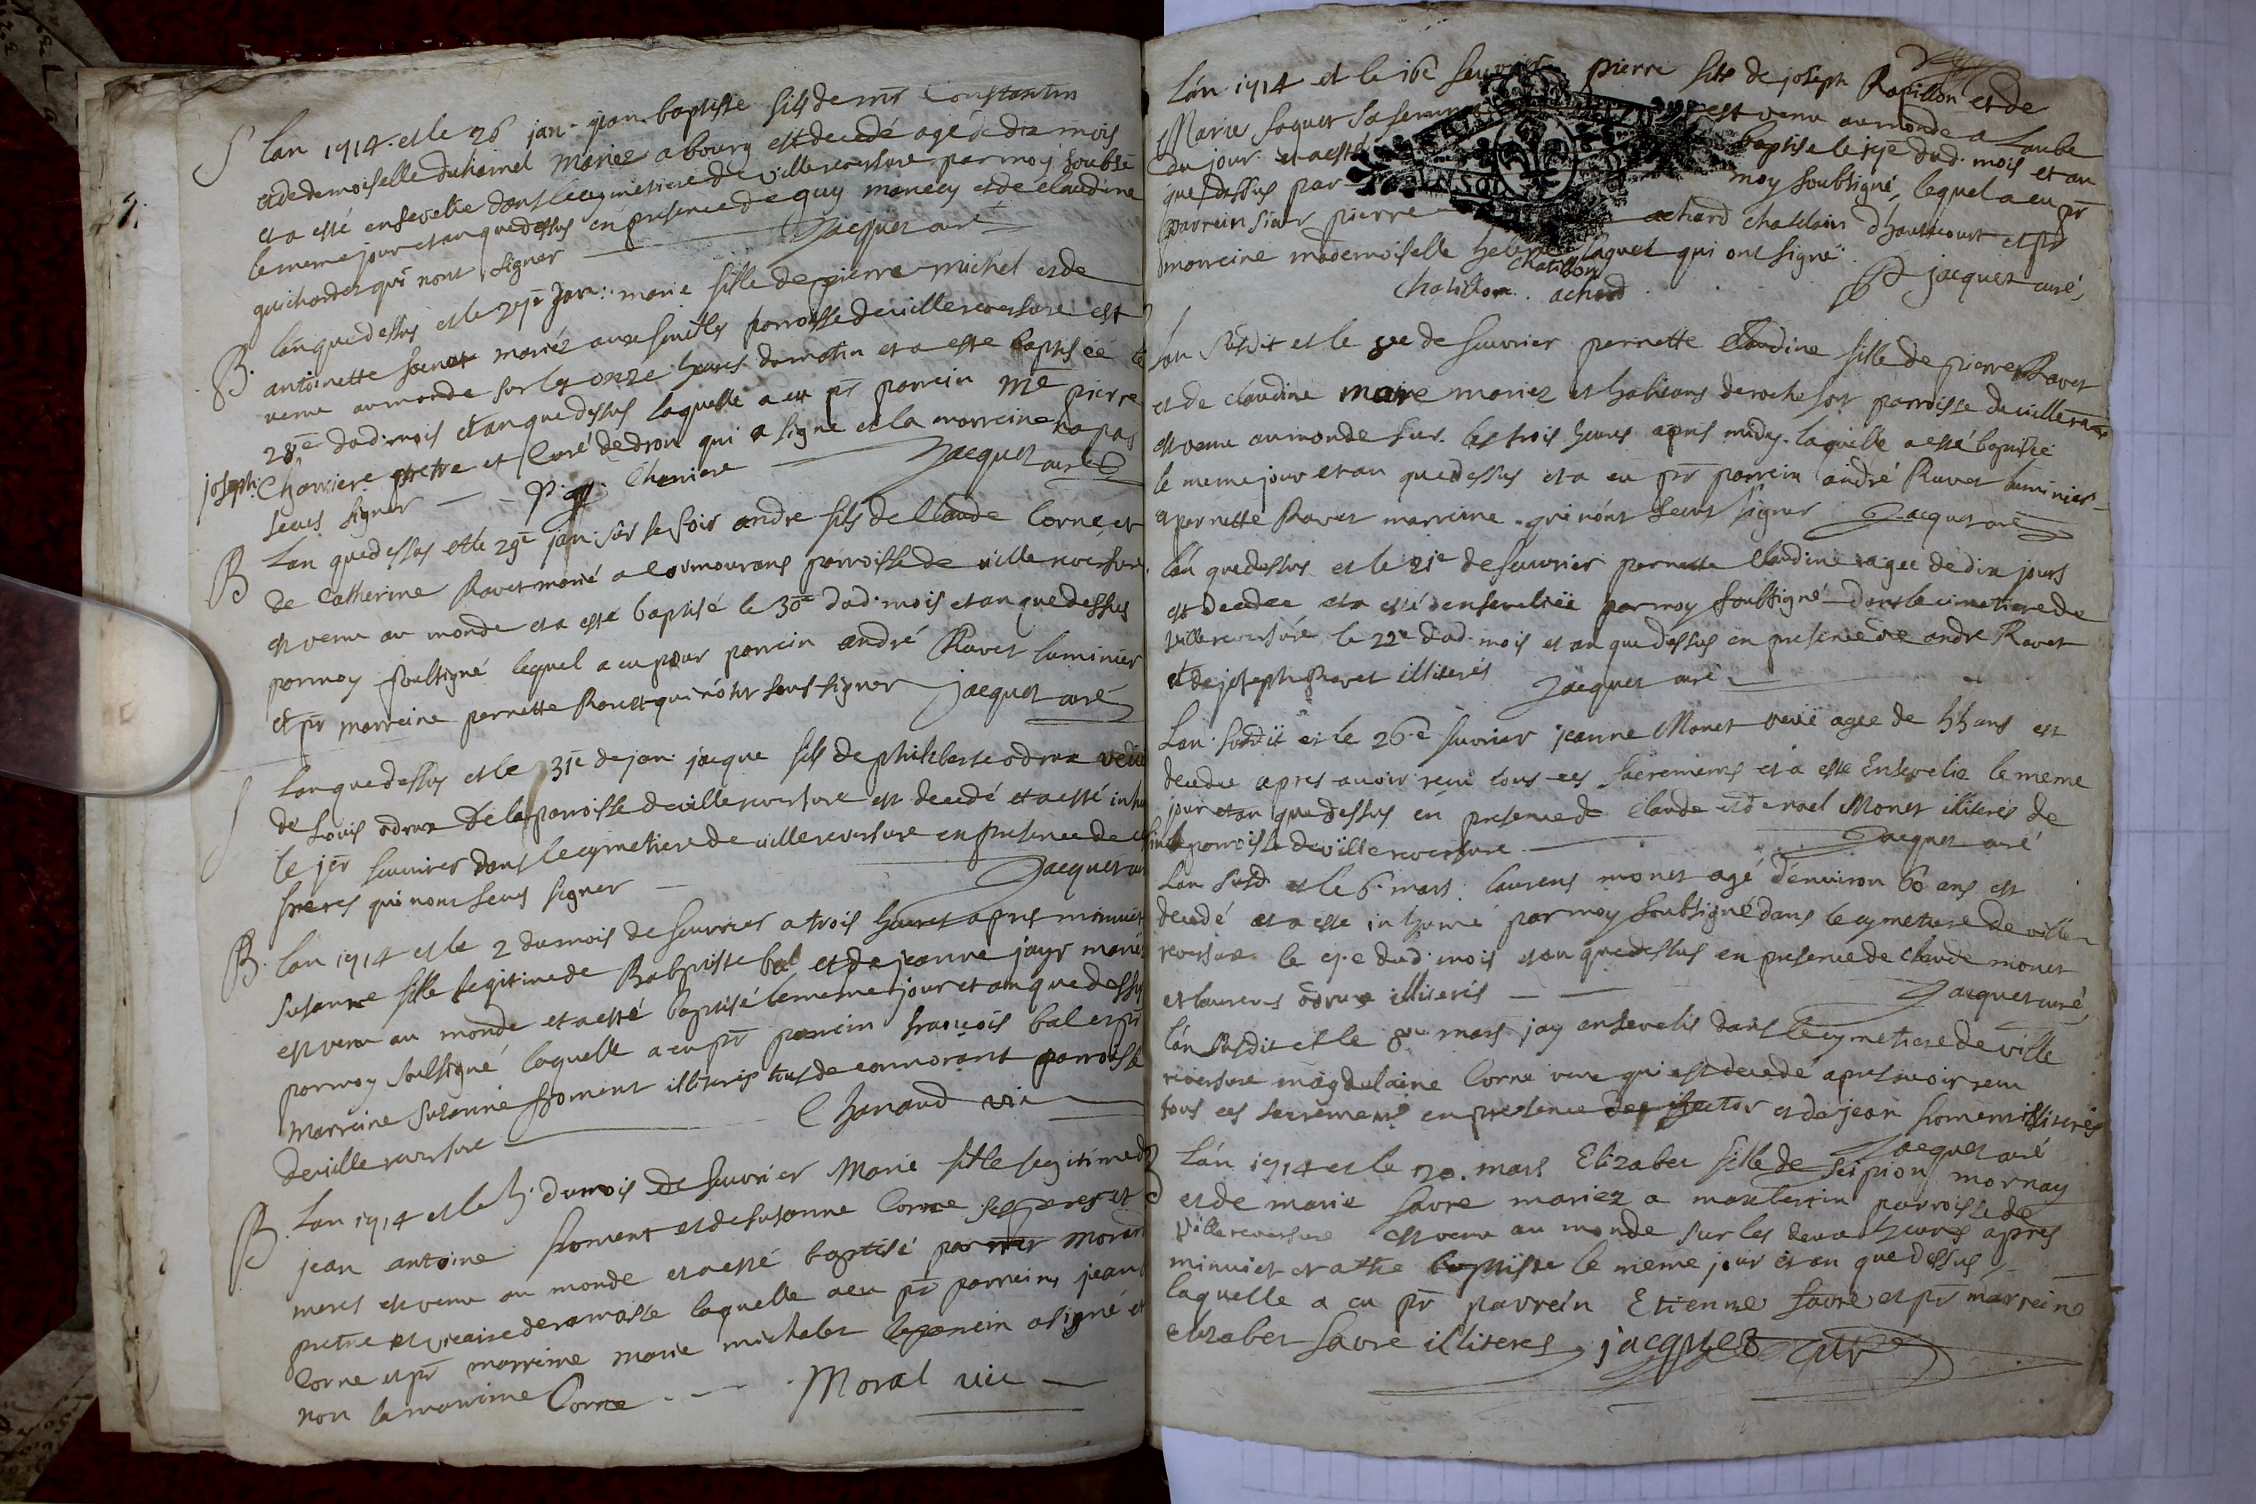 S
lan 1714. et le 26 jan. jean baptiste fils de mr Constantin
et de demoiselle duhamel mariez a bourg est decedé agé de dix mois
et a esté ensevelie dans le cymetiere de villereversure par moy soubsé
le meme jour et an que dessus en presence de guy manecy et de claudine
guichardet qui nont signer Jacquet curé
B. lan que dessus et le 27e Jan: marie fille de pierre michel et de
antoinette mariez aux feuilles parroisse de villereversure est
venu au monde sur les onze heures du matin et a este baptisée le
28e dud. mois et an que dessus laquelle a eu pr parrein Me pierre
joseph Charriere pretre et Curé de drom qui a signe et la marreine na pas
sceus signer P. J. Charriere Jacquet curé
B Lan que dessus et le 29e jan. sur le soir andre fils de Claude Corne et
de Catherine Ravet marié a Conmourans parroisse de villereversure
est venu au monde et a esté baptisé le 30e dud. mois et an que dessus
par moy soussigné lequel a eu pour parrein andré Ravet luminier
et pr marreine pernette Ravet qui nont sceus signer jacquet curé
S lan que dessus et le 31e de jan. jacque fils de philiberte odrux veuve
de Louis odrux de la parroisse de villereversure est decedé et a esté inhu
le jer feuvrier dans le cymetiere de villereversure en presence de
freres qui nont sceus signer Jacquet cu
B. lan 1714 et le 2 du mois de feuvrier a trois heures apres minuit
susanne fille legitime de Babptiste bal et de jeanne jayr mariés
est venu au monde et a esté baptisé le meme jour et an que dessus
par moy soussigné laquelle a eu pr parrein françois bal et pr
marreine susanne froment illiterés tous de conmorant parroisse
de villereversure Chanaud vic
B. Lan 1714 et le 5. du mois de feuvrier Marie fille legitime de
jean antoine froment et de susanne Corne ses peres et
meres est venu au monde et a esté baptisé par moral
pretre et vicaire de ramasse laquelle a eu pr parrein jean
Corne et pr marreine marie michalet le parrein a signé et
non la marreine Corne Moral vic
Lán 1714 et le 16e feuvrier pierre fils de joseph Rapillon et de
Marie Jaquet sa femme est venu au monde a Laube
du jour et a esté baptise le 17e dud. mois et an
que dessus par moy soubsigné, lequel a eu pr
parrein sieur pierre achard chatelain dhautecourt et pr
marreine mademoiselle Jaquet qui ont signé
Chatillon
Chatillon. achard jacquet curé
lan susdit et le de feuvrier pernette Claudine fille de pierre Ravet
et de claudine maire mariez et habitans de rochefort parroisse de villerever
est venu au monde sur les trois heures apres midy. laquelle a esté baptisée
le meme jour et an que dessus et a eu pr parrein andré Ravet luminier
et pernette Ravet marreine qui nont sceus signer Jacquet curé
lán que dessus et le 21e de feuvrier pernette Claudine agée de dix jours
est decedee et a esté densevelië par moy soubsigné dans le cimetiere de
villereversure le 22e dud. mois et an que dessus en presence de andre Ravet
et de joseph Ravet illiterés Jacquet curé
Lan susdit et le 26e feuvrier jeanne Monet veuë agee de 55 ans est
decedee apres avoir receu tous ces sacremens et a esté Ensevelie le meme
jour et an que dessus en presence de Claude et de noel Monet illiterés de
parroisse de villereversure Jacquet curé
Lan susd. et le 6. mars laurens monet agé d'environ 60 ans est
decedé et a este inhumé par moy soubsigné dans le cymetiere de ville
reversure le 7.e dud. mois et an que dessus en presence de claude monet
et laurens odrux illiterés Jacquet curé
lán susdit et le 8me mars jay ensevelis dans le cymetiere de ville
reversure magdelaine Corne veve qui est decedé apres avoir receu
tous ces sacremens en presence de et de jean froment illiterés
Jacquet curé
B Lán 1714 et le 20. mars Elizabet fille de scipion mornay
et de marie favre mariez a parroisse de
villereversure est venu au monde sur les deux heures apres
minuict et a este baptiste le meme jour et an que dessus
laquelle a eu pr parrein Etienne favre et pr marreine
elizabet favre illiteres jacquet curé